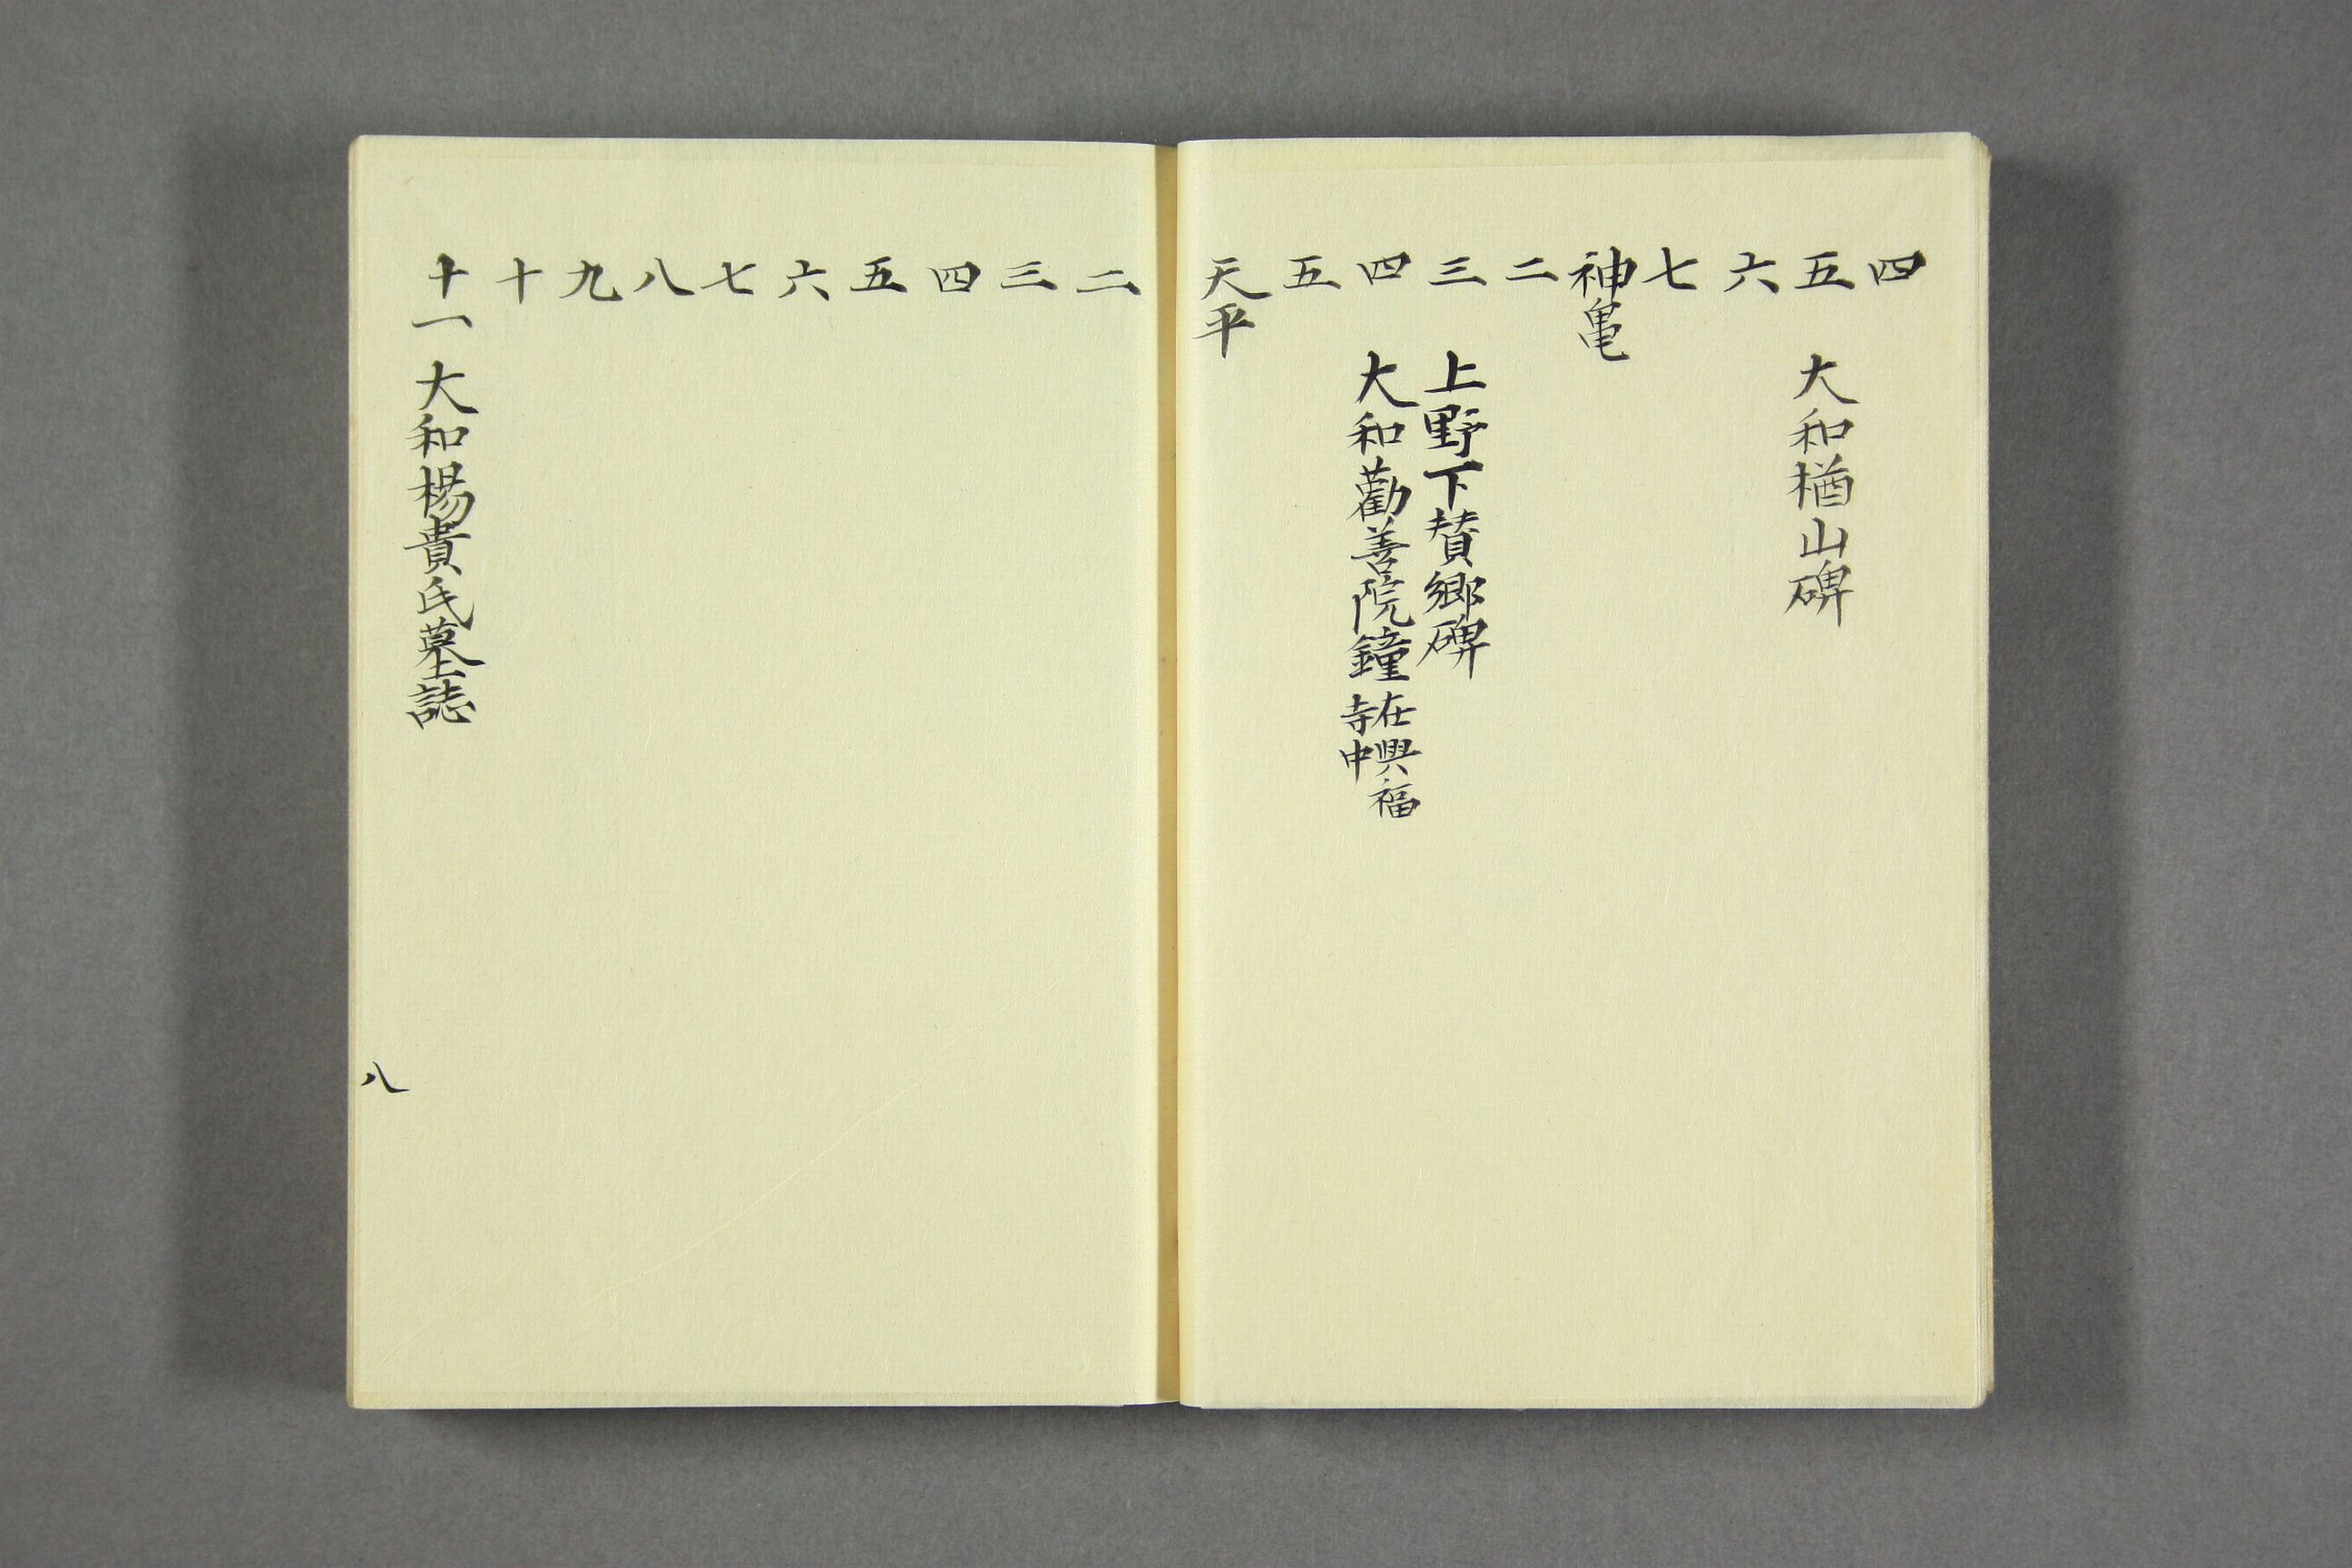 四
五 大和楢山碑
六
七
神亀
二
三 上野下賛郷碑
四 大和勸善院鐘 在興福寺中
五
天平
二
三
四
五
六
七
八
九
十
十一 大和楊貴氏墓誌
八